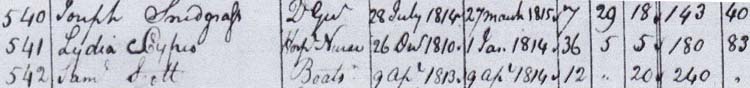 540 Joseph Snodgrass Do Gur 28 July 1814 27 march 1815 7 29 18 143 40
541 Lydia Hospl Nurse 26 Dec 1810 1 Jan 1814 36 5 5 180 83
542 Saml Scott Boatsn 9 Apl 1813 9 Apl 1814 12 " 20 240 "